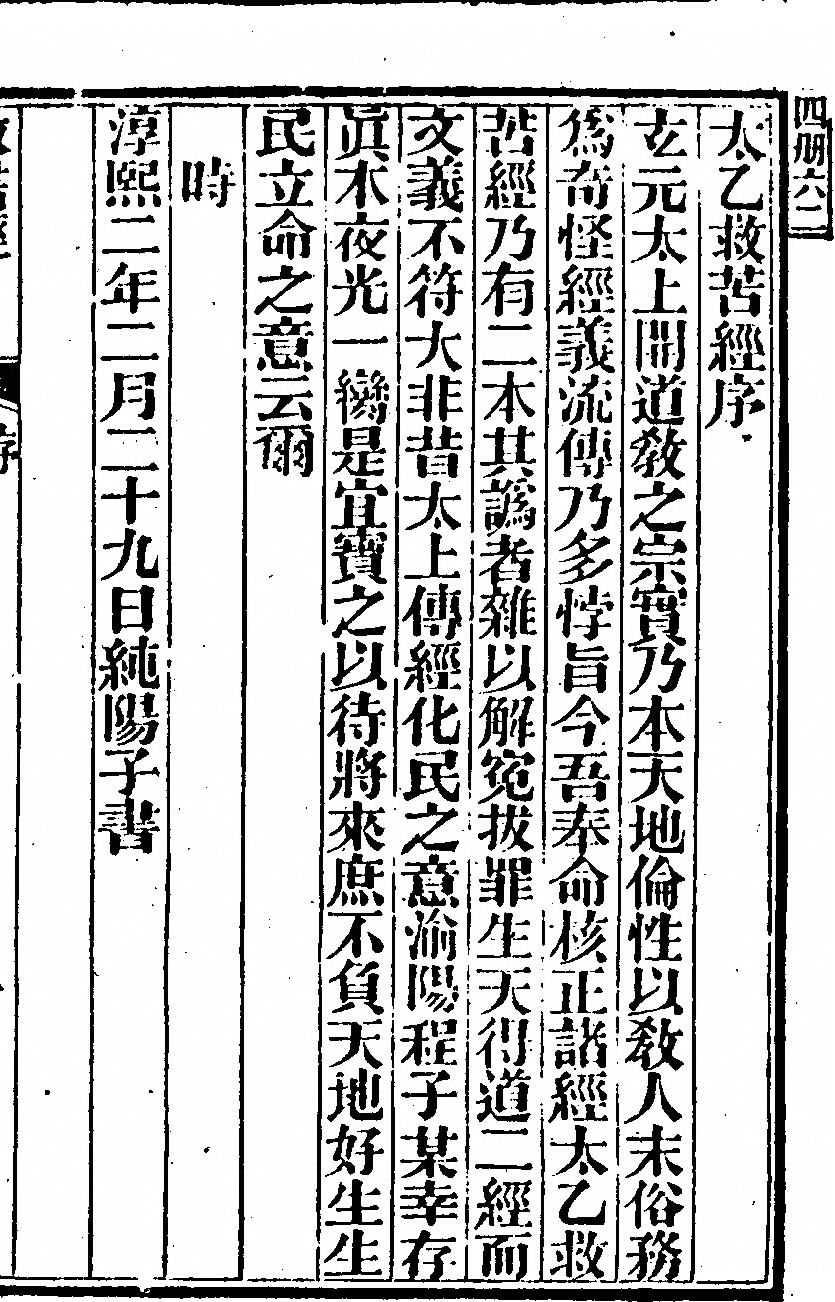 四册六二
太乙救苦經序
玄元太上開道敎之宗實乃本天地倫性以敎人末俗務
爲奇怪經義流傳乃多悖旨今吾奉命核正諸經太乙救
苦經乃有二本其譌者雜以解寃拔罪生天得道二經而
文義不符大非昔太上傳經化民之意渝陽程子某幸存
眞本夜光一臠是宜寶之以待將來庶不負天地好生生
民立命之意云爾
時
淳熙二年二月二十九日純陽子書